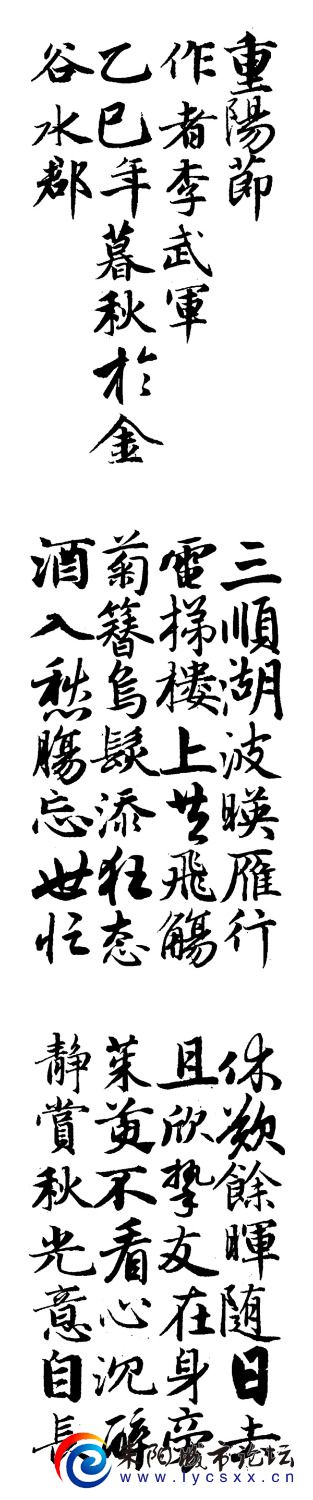 重陽節
作者李武軍
乙巳年暮秋於金
谷水郡
三順湖波暎雁行
電梯樓上共飛觴
菊簪烏髮添狂态
酒入愁腸忘世忙
休歎餘暉随日去
且欣摯友在身旁
茱萸不看心沉醉
静賞秋光意自長
耒阳城市论坛
www.lycsxx.cn